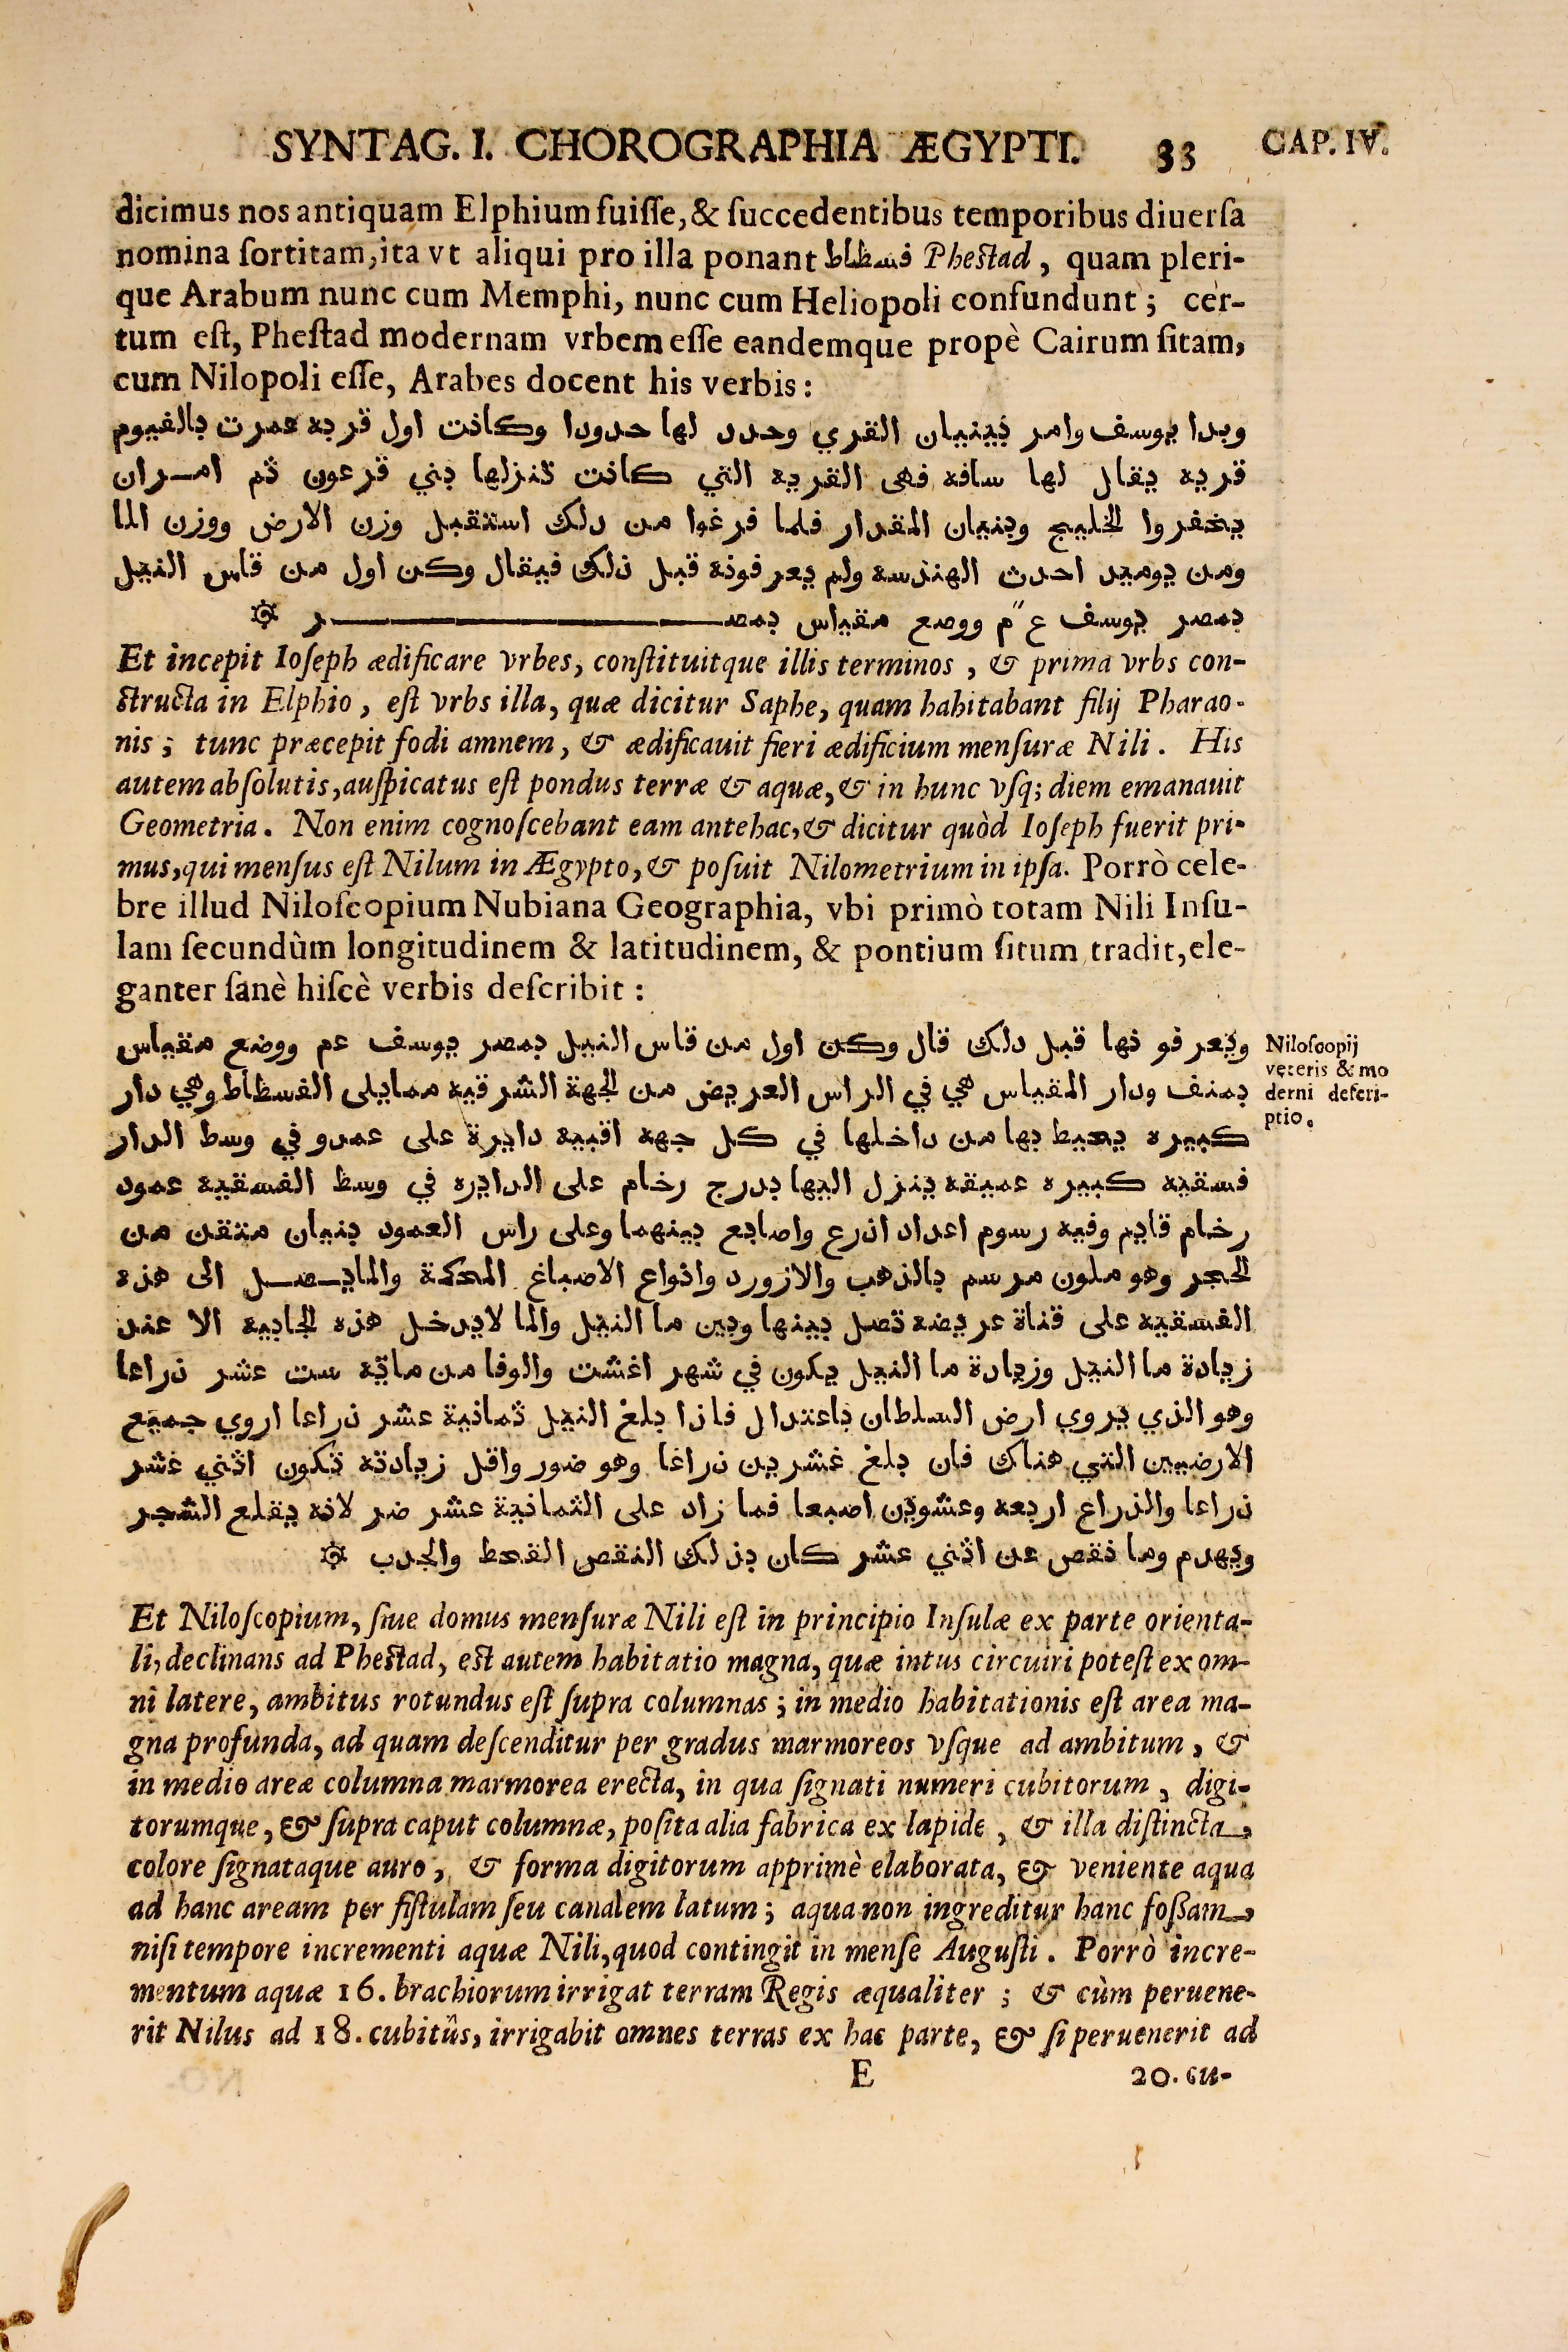 SYNTAG. I. CHOROGRAPHIA ÆGYPTI. 33 CAP. IV.
dicimus nos antiquam Elphium fuiſſe, & ſuccedentibus temporibus diuerſa
nomina ſortitam, ita vt aliqui pro illa ponant فسطاط Pheſtad, quam pleri-
que Arabum nunc cum Memphi, nunc cum Heliopoli confundunt; cer-
tum eſt, Pheſtad modernam vrbem eſſe eandemque propè Cairum ſitam,
cum Nilopoli eſſe, Arabes docent his verbis:
وبدا يوسف وامر ببنيان القري وحدد لها حدودا وكانت اول قريه عمرت بالفيوم
قريه يقال لها سافه فهى القريه التي كانت تنزلها بني فرعون ثم امـران
يخفروا الخليج وبنيان المقدار فلما فرغوا من دلك استقبل وزن الارض ووزن الما
ومن يوميد احدث الهندسه ولم يعرفونه قبل ذلك فيقال وكن اول من قاس النيل
بمصر يوسف ع م ووصع مقياس بمصـــر ۞
Et incepit Ioſeph ædificare vrbes, conſtituitque illis terminos, & prima vrbs con-
ſtructa in Elphio, eſt vrbs illa, quæ dicitur Saphe, quam habitabant filij Pharao-
nis; tunc præcepit fodi amnem, & ædificauit fieri ædificium menſuræ Nili. His
autem abſolutis, auſpicatus eſt pondus terræ & aquæ, & in hunc vſq; diem emanauit
Geometria. Non enim cognoſcebant eam antehac, & dicitur quòd Ioſeph fuerit pri-
mus, qui menſus eſt Nilum in Ægypto, & poſuit Nilometrium in ipſa. Porrò cele-
bre illud Niloſcopium Nubiana Geographia, vbi primò totam Nili Inſu-
lam ſecundùm longitudinem & latitudinem, & pontium ſitum tradit, ele-
ganter ſanè hiſcè verbis deſcribit:
ويعرفو نها قبل دلك قال وكن اول من قاس النيل بمصر يوسف عم ووضع مقياس
بمنف ودار المقياس هي في الراس العريض من الجهة الشرقيه ممايلى الفسطاط وهي دار
كبيره يحيط بها من داخلها في كل جهه اقبيه دايرة على عمدو في وسط الدار
فسقيه كبيره عميقه ينزل اليها بدرج رخام على الدايره في وسط الفسقيه عمود
رخام قايم وفيه رسوم اعداد اذرع واصابع بينهما وعلى راس العمود بنيان متقن من
الحجر وهو ملون مرسم بالذهب والازورد وانواع الاصباغ المحكمة والمايـصـل الى هذه
الفسقيه على قناة عريضه تصل بينها وبين ما النيل والما لايدخل هذه الجابيه الا عند
زيادة ما النيل وزيادة ما النيل يكون في شهر اغشت والوفا من مايه ست عشر ذراعا
وهو الذي يروي ارض السلطان باعتدال فاذا بلغ النيل ثمانية عشر ذراعا اروي جميع
الارضيين التي هناك فان بلغ غشرين ذراغا وهو ضور واقل زيادته تكون اثني غشر
ذراعا والذراع اربعه وعشوين اصبعا فما زاد على الثمانية عشر ضر لانه يقلع الشجر
ويهدم وما نقص عن اثني عشر كان بذلك النقص القحط والجدب ۞
Niloſcopij
veteris & mo
derni deſcri-
ptio.
Et Niloſcopium, ſiue domus menſuræ Nili eſt in principio Inſulæ ex parte orienta-
li, declinans ad Pheſtad, eſt autem habitatio magna, quæ intus circuiri poteſt ex om-
ni latere, ambitus rotundus eſt ſupra columnas; in medio habitationis eſt area ma-
gna profunda, ad quam deſcenditur per gradus marmoreos vſque ad ambitum, &
in medio areæ columna marmorea erecta, in qua ſignati numeri cubitorum, digi-
torumque, & ſupra caput columnæ, poſita alia fabrica ex lapide, & illa diſtincta,
colore ſignataque auro, & forma digitorum apprimè elaborata, & veniente aqua
ad hanc aream per fiſtulam ſeu canalem latum; aqua non ingreditur hanc foßam,
niſi tempore incrementi aquæ Nili, quod contingit in menſe Auguſti. Porrò incre-
mentum aquæ 16. brachiorum irrigat terram Regis æqualiter; & cùm peruene-
rit Nilus ad 18. cubitûs, irrigabit omnes terras ex hac parte, & ſi peruenerit ad
E 20. cu-